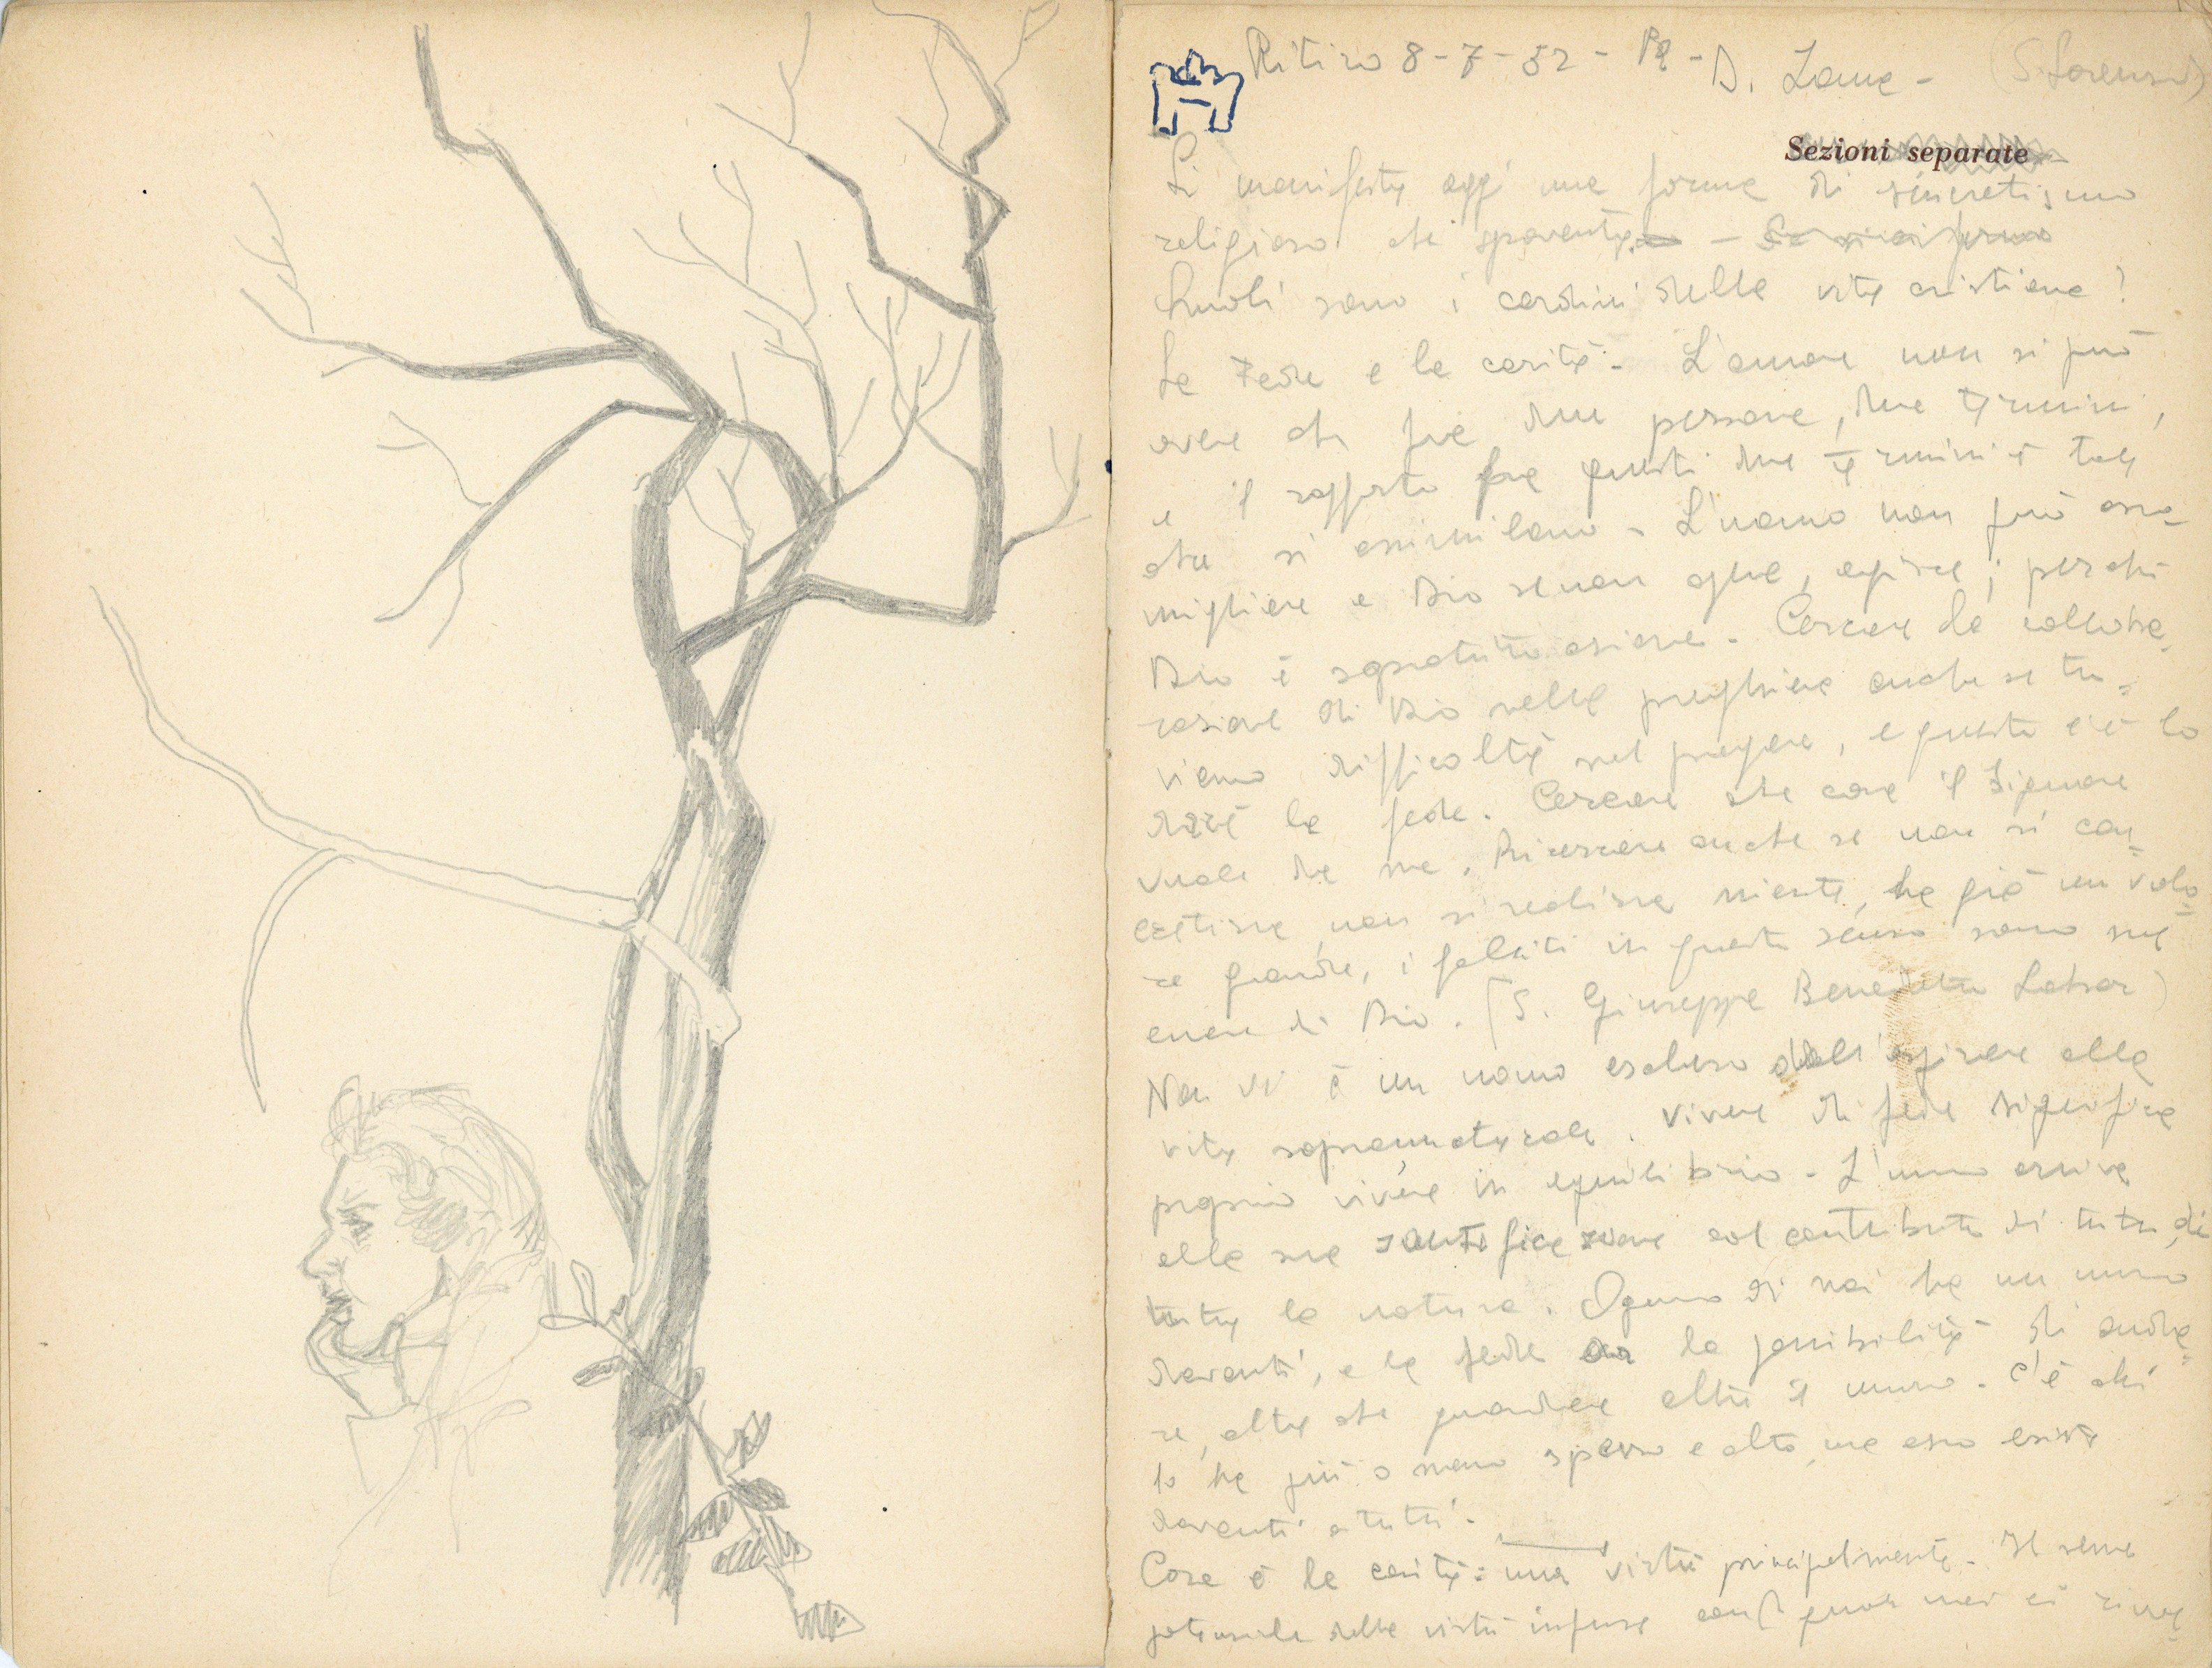 Ritiro 8-7-52 - - D. Zama - (S Lorenzo)
Sezioni separate
Si manifesta oggi una forma di sincretismo
religioso che spaventa. -
Quali sono i cardini della vita cristiana?
La Fede e la carità - L'amore non si può
avere che fra due persone, due termini,
e il rapporto fra questi due termini è tale
che si assimilano - L'uomo non può asso-
migliare a Dio se non opera, agisce; perché
Dio è sopratutto azione - Cercare la collabo-
razione di Dio nella preghiera anche se tro-
viamo difficoltà nel pregare, e questa ce la
darà la fede. Cercare che cosa il Signore
vuole da me. Ricercare anche se non si con-
cretizza, non si realizza niente, ha già un valo-
re grande, i falliti in questo senso sono
di Dio. (S. Giuseppe Benedetto Labre)
Non vi è un uomo escluso dall'aspirare alla
vita sopranaturale. Vivere di fede significa
proprio vivere in equilibrio - L'uomo arriva
alla sua santificazione col contributo di tutti, di
tutta la natura. Ognuno di noi ha un muro
davanti, e la fede la possibilità di anda-
re, oltre che guardare oltre il muro - C'è chi
lo ha più o meno spesso e alto, ma esso esiste
davanti a tutti -
Cosa è la carità: una virtù principalmente - Il seme
potenziale delle virtù infuse